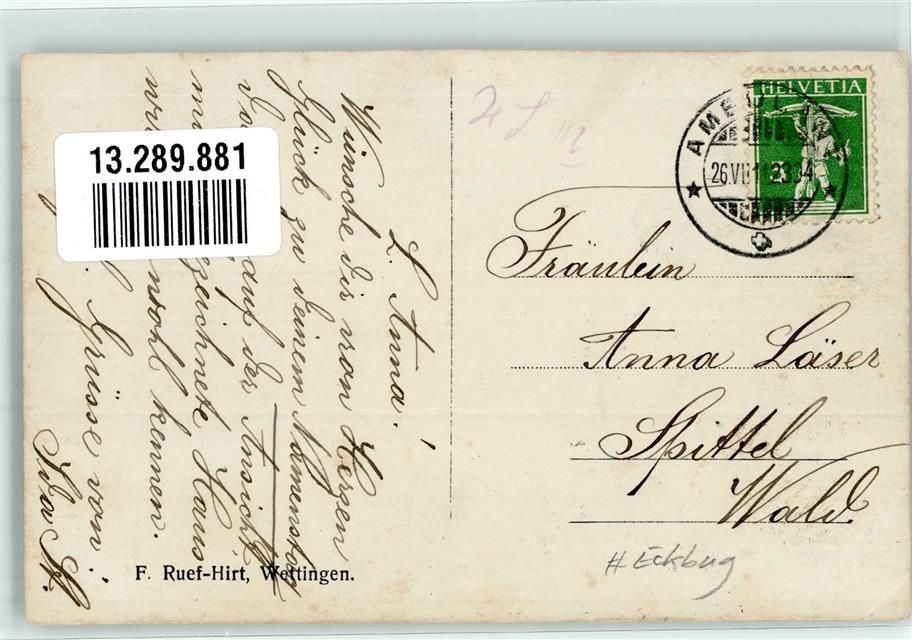 13.289.881
L. Anna!
Wünsche dir von Herzen
Glück zu deinem Namenstag
auf der Ansicht
gezeichnete Haus
wohl kennen.
Grüsse von
Ida
F. Ruef-Hirt, Wettingen.
HELVETIA
26.VII.11.23
Fräulein
Anna Läser
Spittel
Wald.
#Eckbug